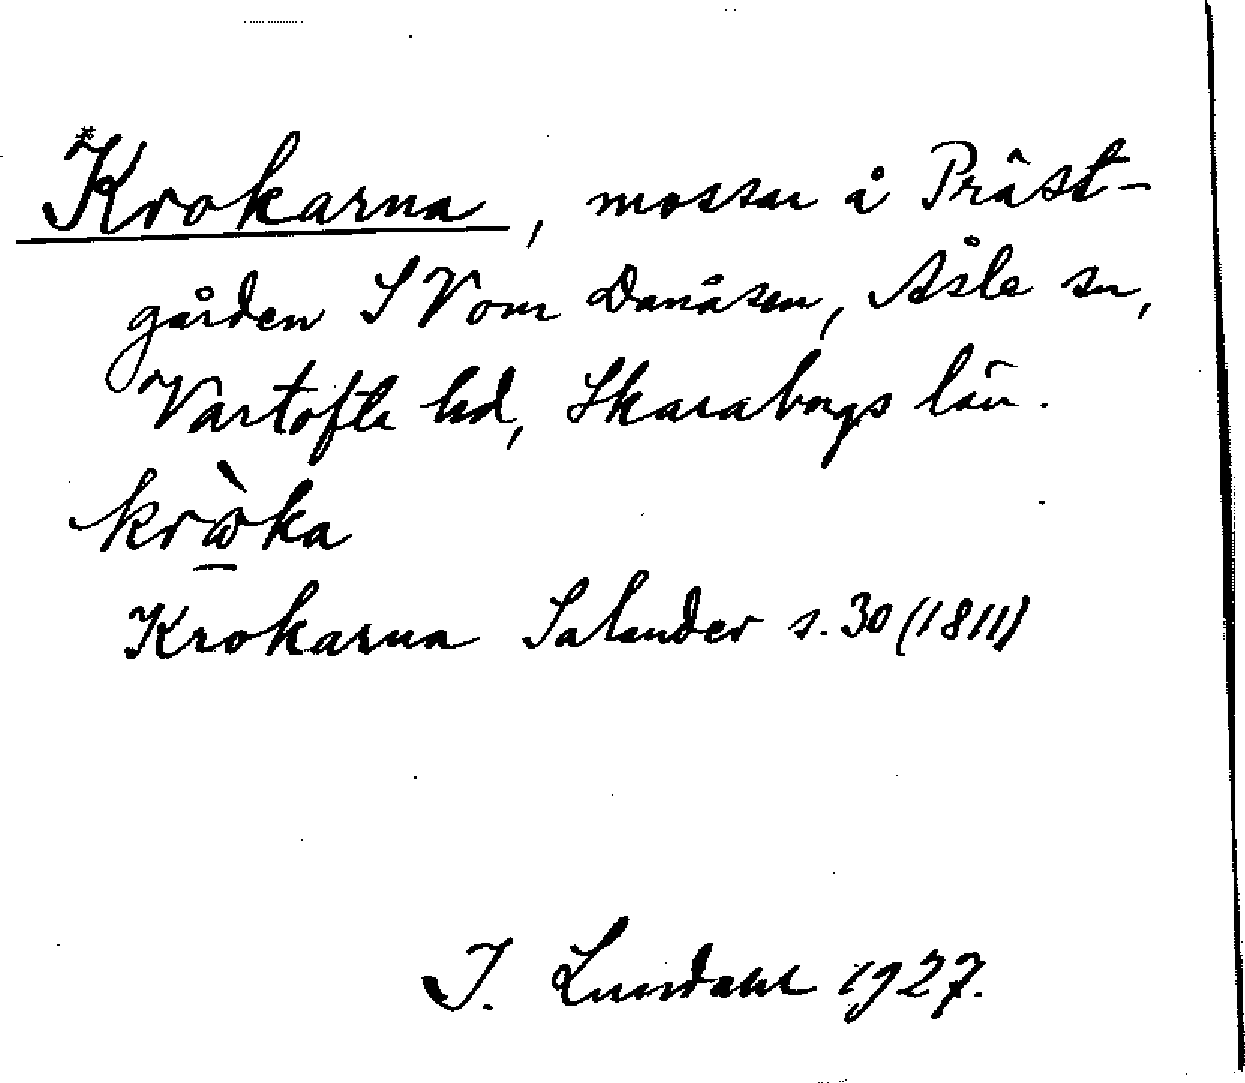 *Krokarna, mossar å Präst-
gården SV om Danåsen, Åsle sn,
Vartofta hd, Skaraborgs län.
krὼ̲ka
Krokarna Salander s. 30 (1811)
I. Lundahl 1927.